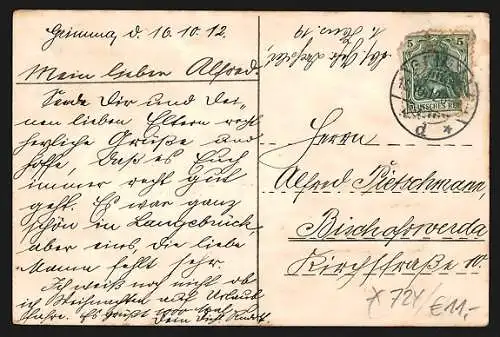 Grimma, d. 16.10.12.
Mein lieber Alfred.
Sende Dir und Dei-
nen lieben Eltern recht
herzliche Grüße und
hoffe, daß es Euch
immer recht gut
geht. Es war ganz
schön in Langebrück,
aber eins, die liebe
Mama fehlt sehr.
Ich weiß noch nicht ob
ich Weihnachten auf Urlaub
fahre. Es grüßt
Dein Rudolf.
Abs.
5 5
DEUTSCHES REICH
d *
Herrn
Alfred Pietschmann,
Bischofswerda
Kirchstraße 10.
x 724/€11,-